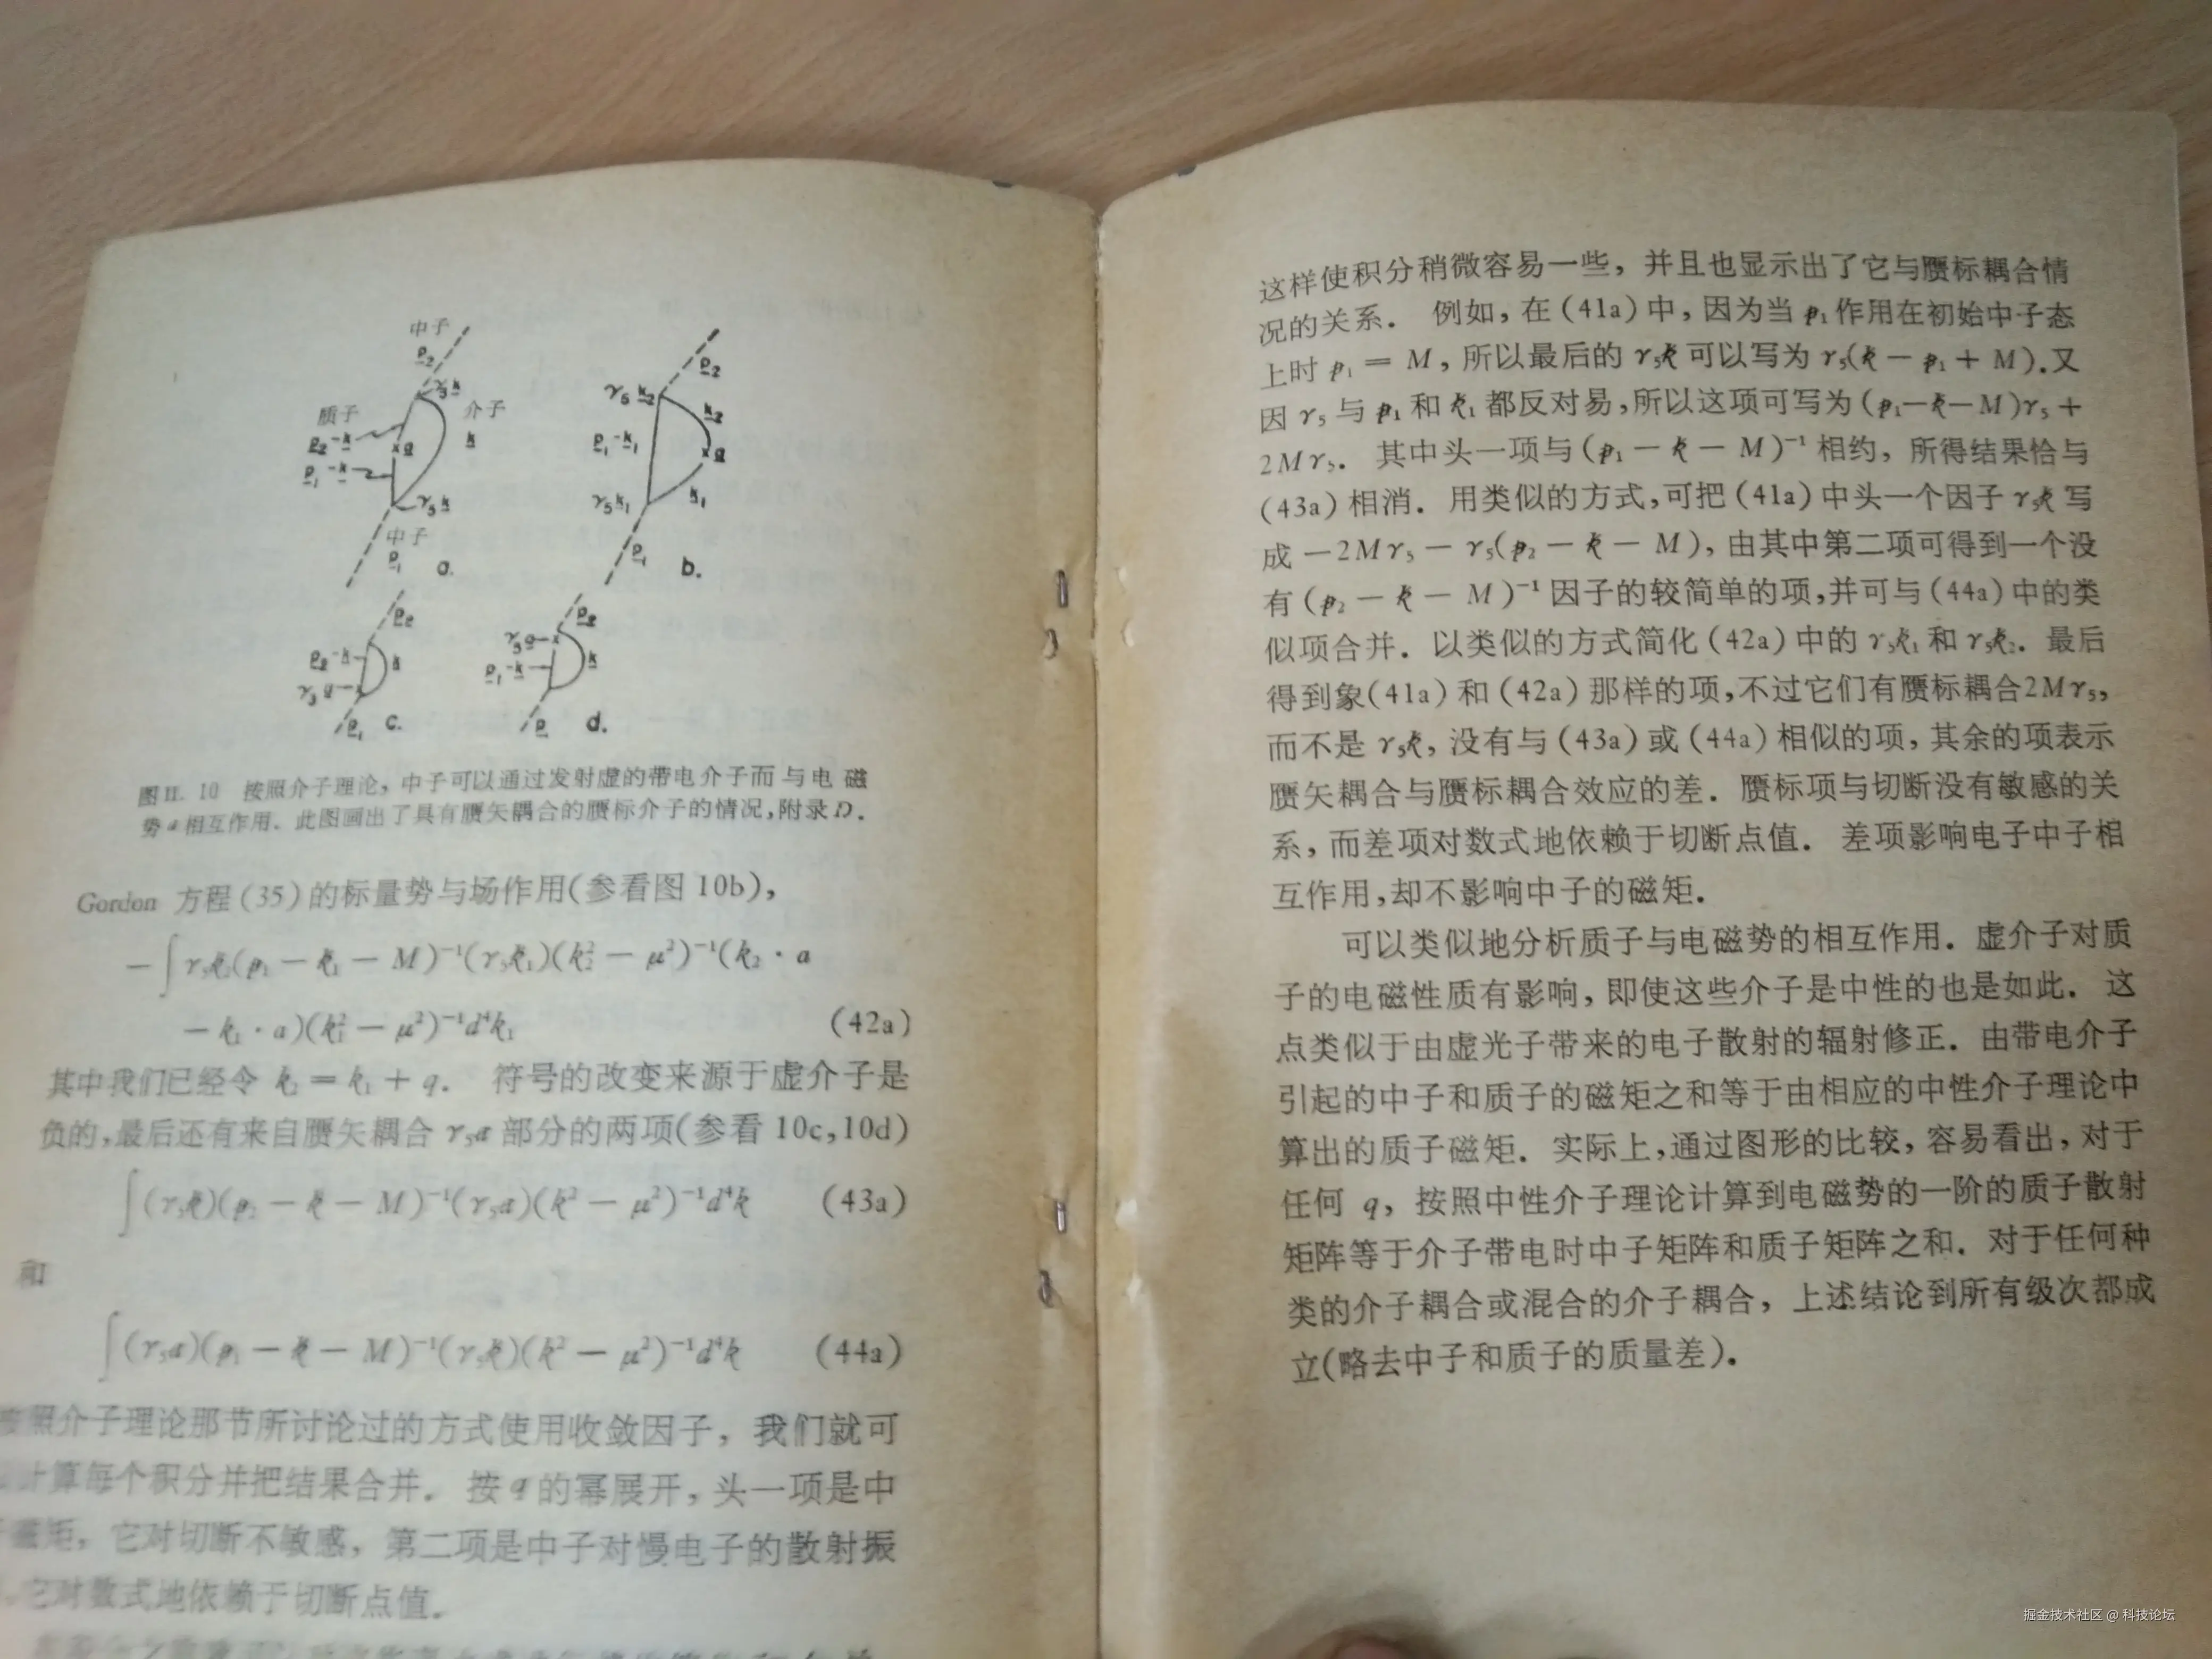 中子
p₂
γ₅k
质子
介子
p₂-k
k
×a
p₁-k
γ₅k
中子
p₁
a.
p₂
γ₅k₂
k₂
p₁-k₁
×a
γ₅k₁
k₁
p₁
b.
p₂
p₂-k
k
γ₅a
p₁
c.
p₂
γ₅a
p₁-k
k
p
d.
图II. 10 按照介子理论，中子可以通过发射虚的带电介子而与电磁
势a相互作用．此图画出了具有赝矢耦合的赝标介子的情况，附录D．
Gordon 方程(35)的标量势与场作用(参看图 10b)，
−∫γ₅k̸₂(p̸₁ − k̸₁ − M)⁻¹(γ₅k̸₁)(k₂² − μ²)⁻¹(k₂ · a
− k₁ · a)(k₁² − μ²)⁻¹d⁴k₁ (42a)
其中我们已经令 k₂ = k₁ + q． 符号的改变来源于虚介子是
负的，最后还有来自赝矢耦合 γ₅a̸ 部分的两项(参看 10c，10d)
∫(γ₅k̸)(p̸₂ − k̸ − M)⁻¹(γ₅a̸)(k² − μ²)⁻¹d⁴k (43a)
和
∫(γ₅a̸)(p̸₁ − k̸ − M)⁻¹(γ₅k̸)(k² − μ²)⁻¹d⁴k (44a)
按照介子理论那节所讨论过的方式使用收敛因子，我们就可
计算每个积分并把结果合并．按 q 的幂展开，头一项是中
磁矩，它对切断不敏感，第二项是中子对慢电子的散射振
它对数式地依赖于切断点值．
这样使积分稍微容易一些，并且也显示出了它与赝标耦合情
况的关系． 例如，在(41a)中，因为当 p̸₁ 作用在初始中子态
上时 p̸₁ = M，所以最后的 γ₅k̸ 可以写为 γ₅(k̸ − p̸₁ + M)．又
因 γ₅ 与 p̸₁ 和 k̸₁ 都反对易，所以这项可写为(p̸₁−k̸−M)γ₅ +
2Mγ₅． 其中头一项与(p̸₁ − k̸ − M)⁻¹ 相约，所得结果恰与
(43a)相消．用类似的方式，可把(41a)中头一个因子 γ₅k̸ 写
成 −2Mγ₅ − γ₅(p̸₂ − k̸ − M)，由其中第二项可得到一个没
有(p̸₂ − k̸ − M)⁻¹ 因子的较简单的项，并可与(44a)中的类
似项合并．以类似的方式简化(42a)中的 γ₅k̸₁ 和 γ₅k̸₂．最后
得到象(41a)和(42a)那样的项，不过它们有赝标耦合2Mγ₅，
而不是 γ₅k̸，没有与(43a)或(44a)相似的项，其余的项表示
赝矢耦合与赝标耦合效应的差．赝标项与切断没有敏感的关
系，而差项对数式地依赖于切断点值． 差项影响电子中子相
互作用，却不影响中子的磁矩．
可以类似地分析质子与电磁势的相互作用．虚介子对质
子的电磁性质有影响，即使这些介子是中性的也是如此． 这
点类似于由虚光子带来的电子散射的辐射修正．由带电介子
引起的中子和质子的磁矩之和等于由相应的中性介子理论中
算出的质子磁矩．实际上，通过图形的比较，容易看出，对于
任何 q，按照中性介子理论计算到电磁势的一阶的质子散射
矩阵等于介子带电时中子矩阵和质子矩阵之和．对于任何种
类的介子耦合或混合的介子耦合，上述结论到所有级次都成
立(略去中子和质子的质量差)．
掘金技术社区 @ 科技论坛